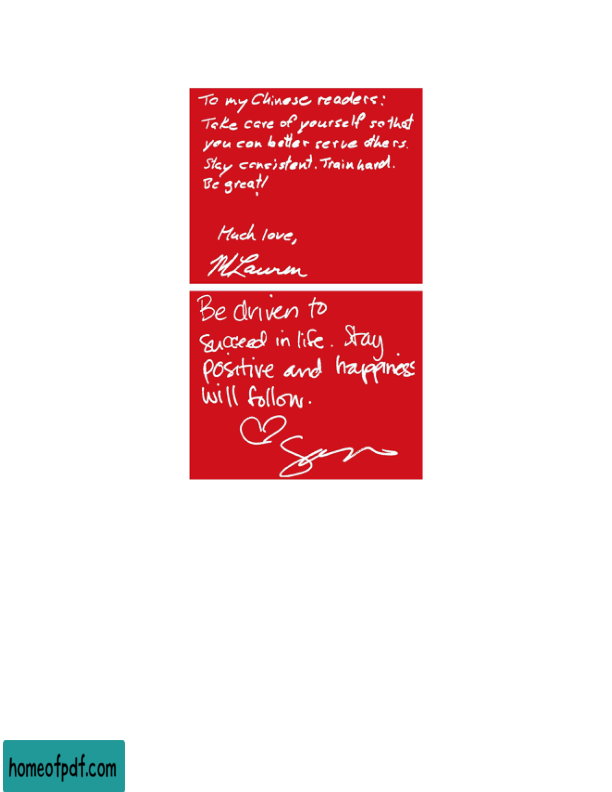 To my Chinese readers:
Take care of yourself so that
you can better serve others.
Stay consistent. Train hard.
Be great!
Much love,
MLauren
Be driven to
succeed in life. Stay
positive and happiness
will follow.
homeofpdf.com